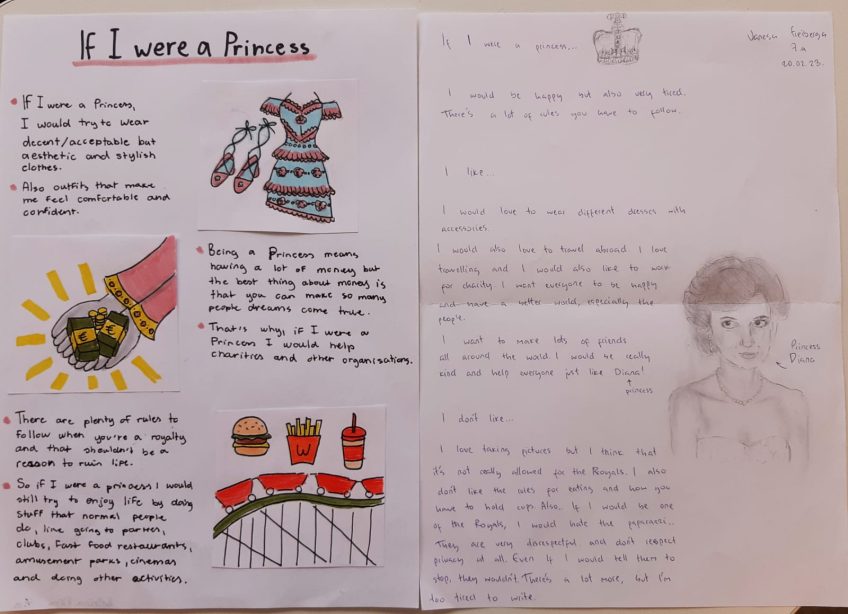 If I were a Princess
If I were a Princess,
I would try to wear
decent/acceptable but
aesthetic and stylish
clothes.
Also outfits that make
me feel comfortable and
confident.
Being a Princess means
having a lot of money but
the best thing about money is
that you can make so many
people dreams come true.
That's why, if I were a
Princess I would help
charities and other organisations.
There are plenty of rules to
follow when you're a royalty
and that shouldn't be a
reason to ruin life.
So if I were a princess I would
still try to enjoy life by doing
stuff that normal people
do, like going to parties,
clubs, fast food restaurants,
amusement parks, cinemas
and doing other activities.
W
If I were a princess...
Vanesa Freiberga
7.a
20.02.23.
I would be happy but also very tired.
There's a lot of rules you have to follow.
I like...
I would love to wear different dresses with
accessories.
I would also love to travel abroad. I love
travelling and I would also like to work
for charity. I want everyone to be happy
and have a better world, especially the
people.
I want to make lots of friends
all around the world. I would be really
kind and help everyone just like Diana!
princess
Princess
Diana
I don't like...
I love taking pictures but I think that
it's not really allowed for the Royals. I also
don't like the rules for eating and how you
have to hold cups. Also.. If I would be one
of the Royals, I would hate the paparazzi..
They are very disrespectful and don't respect
privacy at all. Even if I would tell them to
stop, they wouldn't. There's a lot more, but I'm
too tired to write.